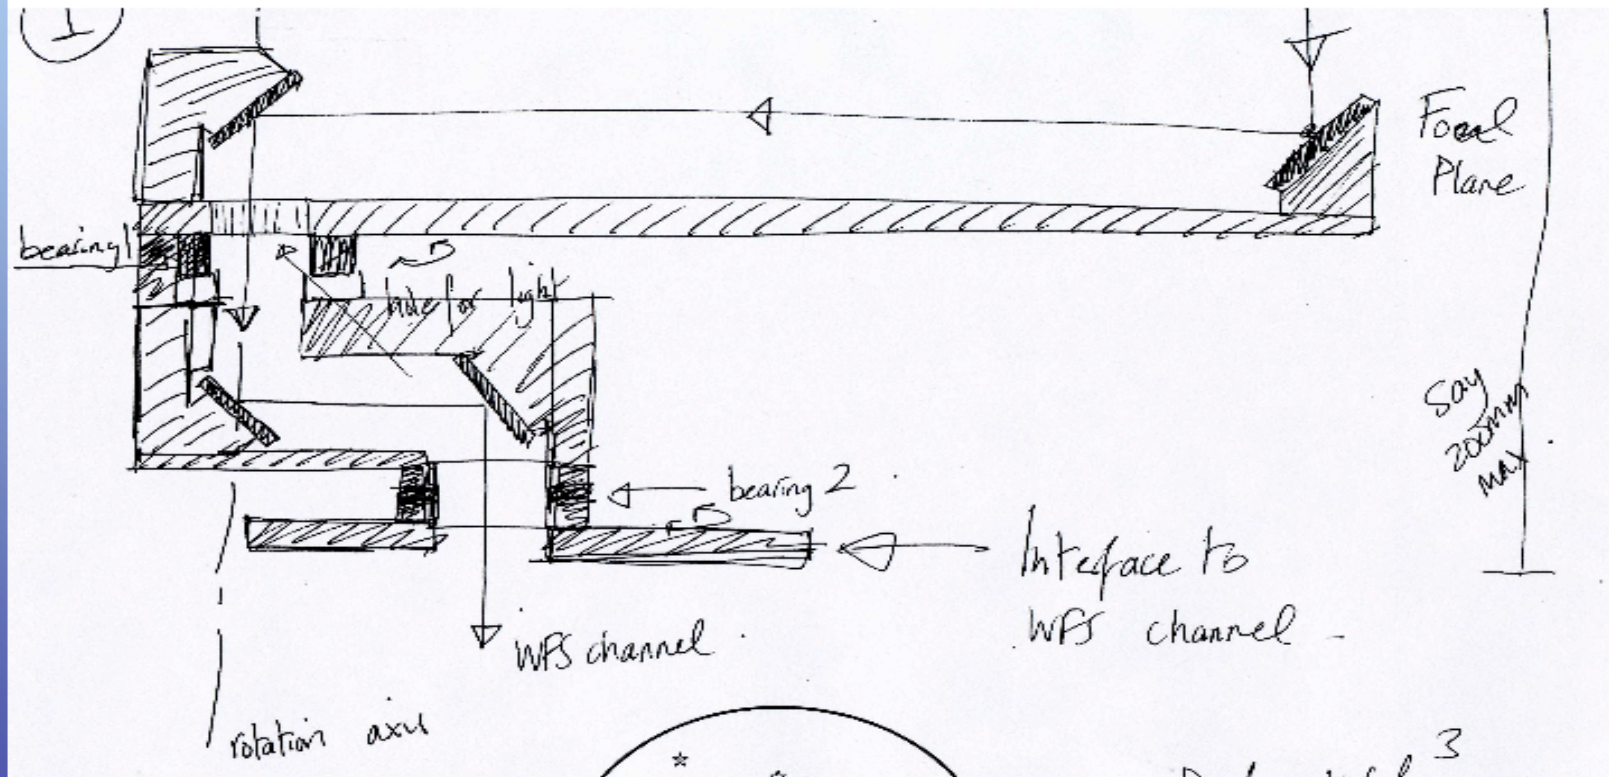 1
Focal
Plane
bearing 1
hole for light
Say
200mm
max
bearing 2
Inteface to
WFS channel
WFS channel
rotation axis
3